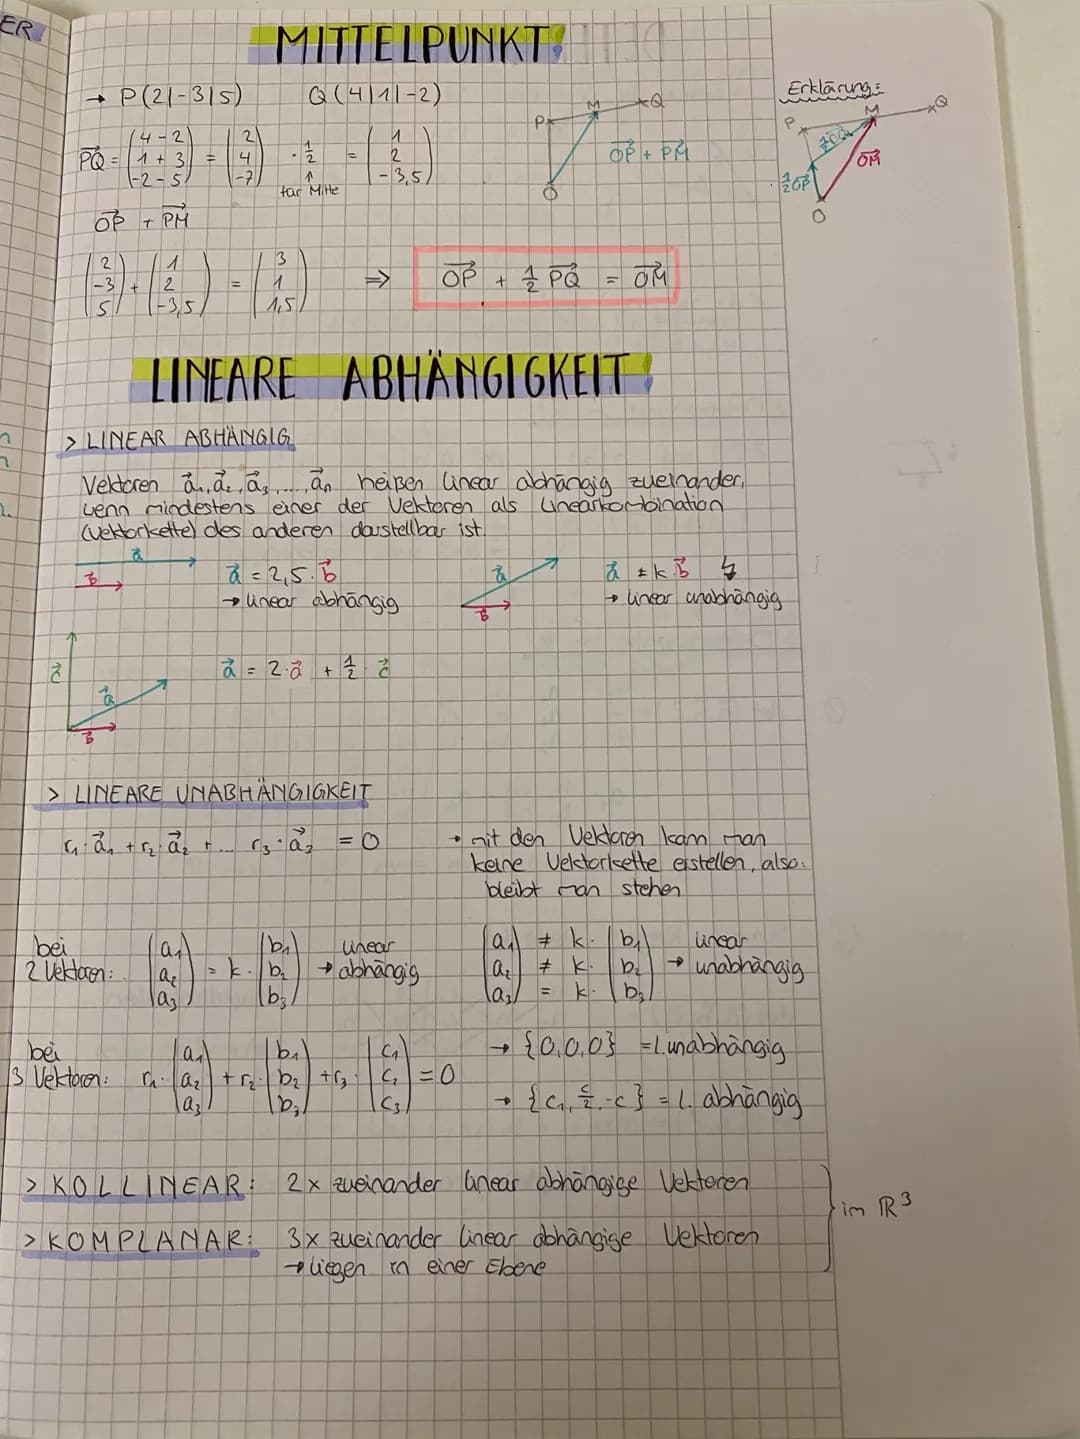 ER
MITTELPUNKT:
→ P(2|-3|5) Q(4|1|-2)
PQ⃗ = (4-2 / 1+3 / -2-5) = (2 / 4 / -7) · 1/2 = (1 / 2 / -3,5)
↑
für Mitte
OP⃗ + PM⃗
(2 / -3 / 5) + (1 / 2 / -3,5) = (3 / 1 / 1,5) ⇒ OP⃗ + 1/2 PQ⃗ = OM⃗
P M Q
OP⃗ + PM⃗
O
Erklärung:
P M Q
1/2 OQ⃗
1/2 OP⃗
OM⃗
O
LINEARE ABHÄNGIGKEIT:
> LINEAR ABHÄNGIG
Vektoren a⃗₁, a⃗₂, a⃗₃, ..., a⃗n heißen linear abhängig zueinander,
wenn mindestens einer der Vektoren als Linearkombination
(Vektorkette) des anderen darstellbar ist.
a⃗
b⃗
a⃗ = 2,5 · b⃗
→ linear abhängig
a⃗
b⃗
a⃗ ≠ k · b⃗ ↯
→ linear unabhängig
c⃗
a⃗
b⃗
a⃗ = 2 · a⃗ + 1/2 · c⃗
> LINEARE UNABHÄNGIGKEIT
r₁ · a⃗₁ + r₂ · a⃗₂ + ... r₃ · a⃗₃ = 0
→ mit den Vektoren kann man
keine Vektorkette erstellen, also
bleibt man stehen
bei
2 Vektoren: (a₁ / a₂ / a₃) = k · (b₁ / b₂ / b₃) → linear abhängig
(a₁ / a₂ / a₃) ≠ k · ≠ k · = k · (b₁ / b₂ / b₃) → linear unabhängig
bei
3 Vektoren: r₁ · (a₁ / a₂ / a₃) + r₂ · (b₁ / b₂ / b₃) + r₃ · (c₁ / c₂ / c₃) = 0
→ {0,0,0} = l. unabhängig
→ {c₁, c/2, -c} = l. abhängig
> KOLLINEAR: 2x zueinander linear abhängige Vektoren
> KOMPLANAR: 3x zueinander linear abhängige Vektoren
→ liegen in einer Ebene
im ℝ³